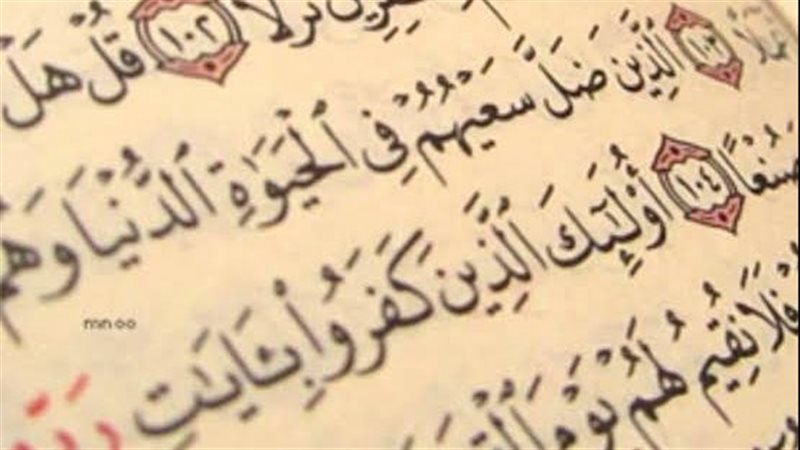 نُزُلًا ١٠٢ قُلْ هَلْ
١٠٣ ٱلَّذِينَ ضَلَّ سَعْيُهُمْ فِى ٱلْحَيَوٰةِ ٱلدُّنْيَا وَهُمْ
صُنْعًا ١٠٤ أُو۟لَٰٓئِكَ ٱلَّذِينَ كَفَرُوا۟ بِـَٔايَٰتِ
فَلَا نُقِيمُ لَهُمْ يَوْمَ
mnoo